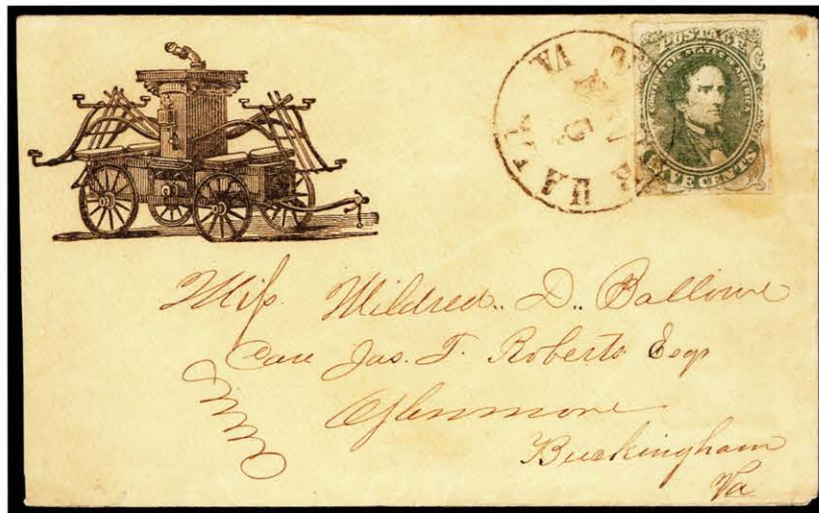 POSTAGE
CONFEDERATE STATES OF AMERICA
FIVE CENTS
VA
5
Miss. Mildred.. D.. Ballowe
Care Jas. T. Roberts Esqr
Glenmore
Buckingham
Va